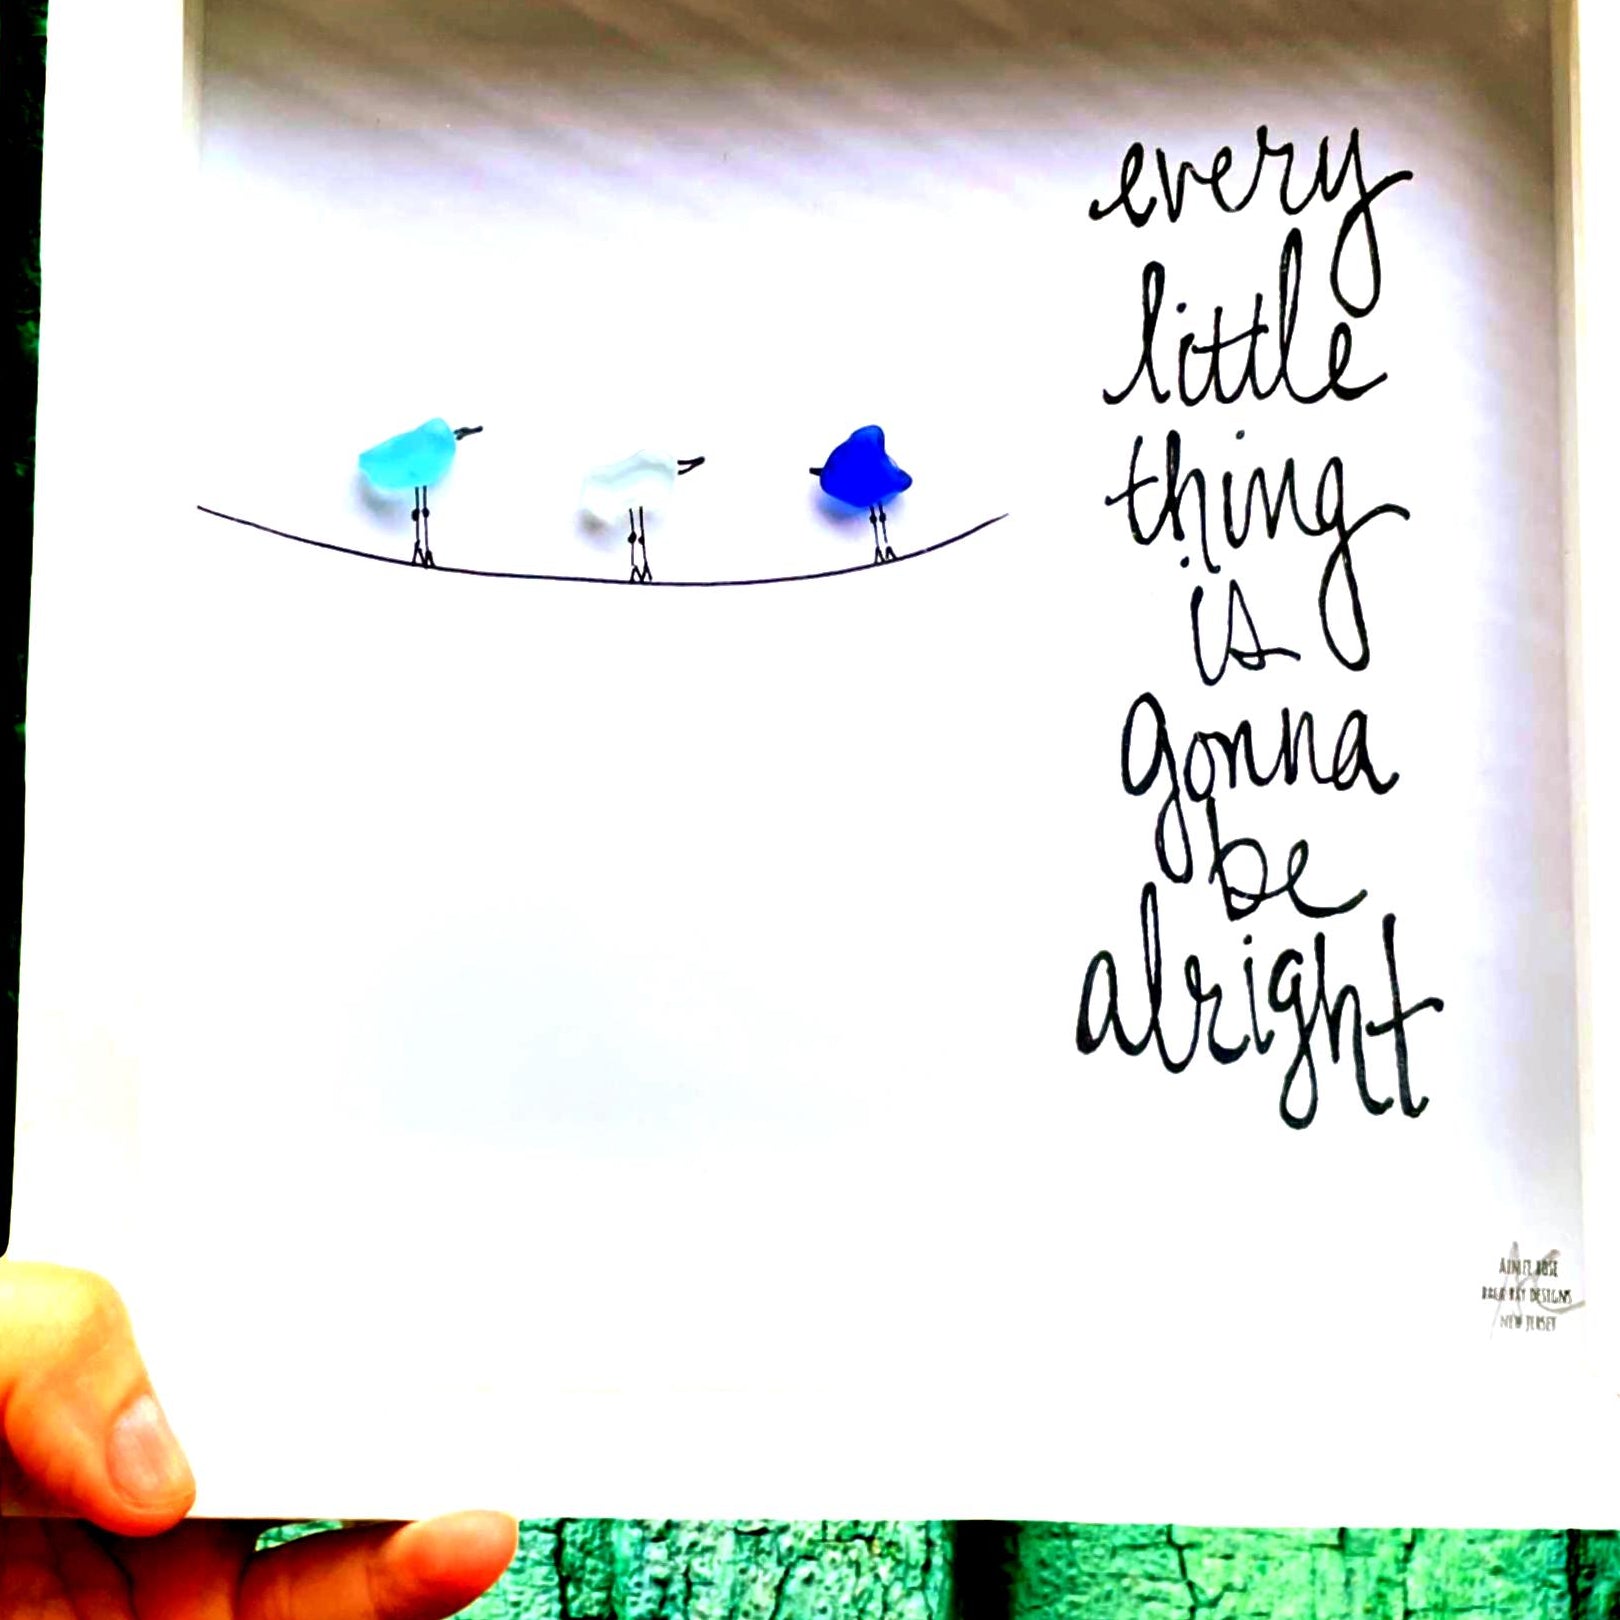 every
little
thing
is
gonna
be
alright
ROSE
DESIGNS
NEW JERSEY